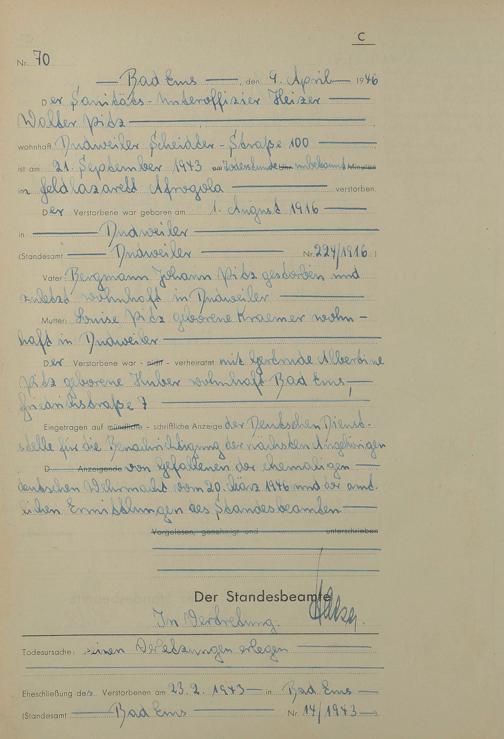 C
Nr. 70
Bad Ems, den 9. April 1946
Der Sanitäts-Unteroffizier Heizer
Walter Pitz
wohnhaft Dudweiler Scheidter-Straße 100
ist am 21. September 1943 um Todesstunde Uhr unbekannt Minuten
in Feldlazarett Afragola verstorben.
Der Verstorbene war geboren am 1. August 1916
in Dudweiler
(Standesamt Dudweiler Nr. 224/1916)
Vater: Bergmann Johann Pitz gestorben und
zuletzt wohnhaft in Dudweiler
Mutter: Louise Pitz geborene Kraemer wohn-
haft in Dudweiler
Der Verstorbene war - nicht - verheiratet mit Gertrude Albertine
Pitz geborene Huber wohnhaft Bad Ems,
Friedrichstraße 7
Eingetragen auf mündliche - schriftliche Anzeige der Deutschen Dienst-
stelle für die Benachrichtigung der nächsten Angehörigen
D Anzeigende von Gefallenen der ehemaligen
deutschen Wehrmacht vom 20. März 1946 und der amt-
lichen Ermittlungen des Standesbeamten
Vorgelesen, genehmigt und unterschrieben
Der Standesbeamte
In Vertretung.
Todesursache: seinen Verletzungen erlegen
Eheschließung des Verstorbenen am 23.2.1943 in Bad Ems
(Standesamt Bad Ems Nr. 14/1943)